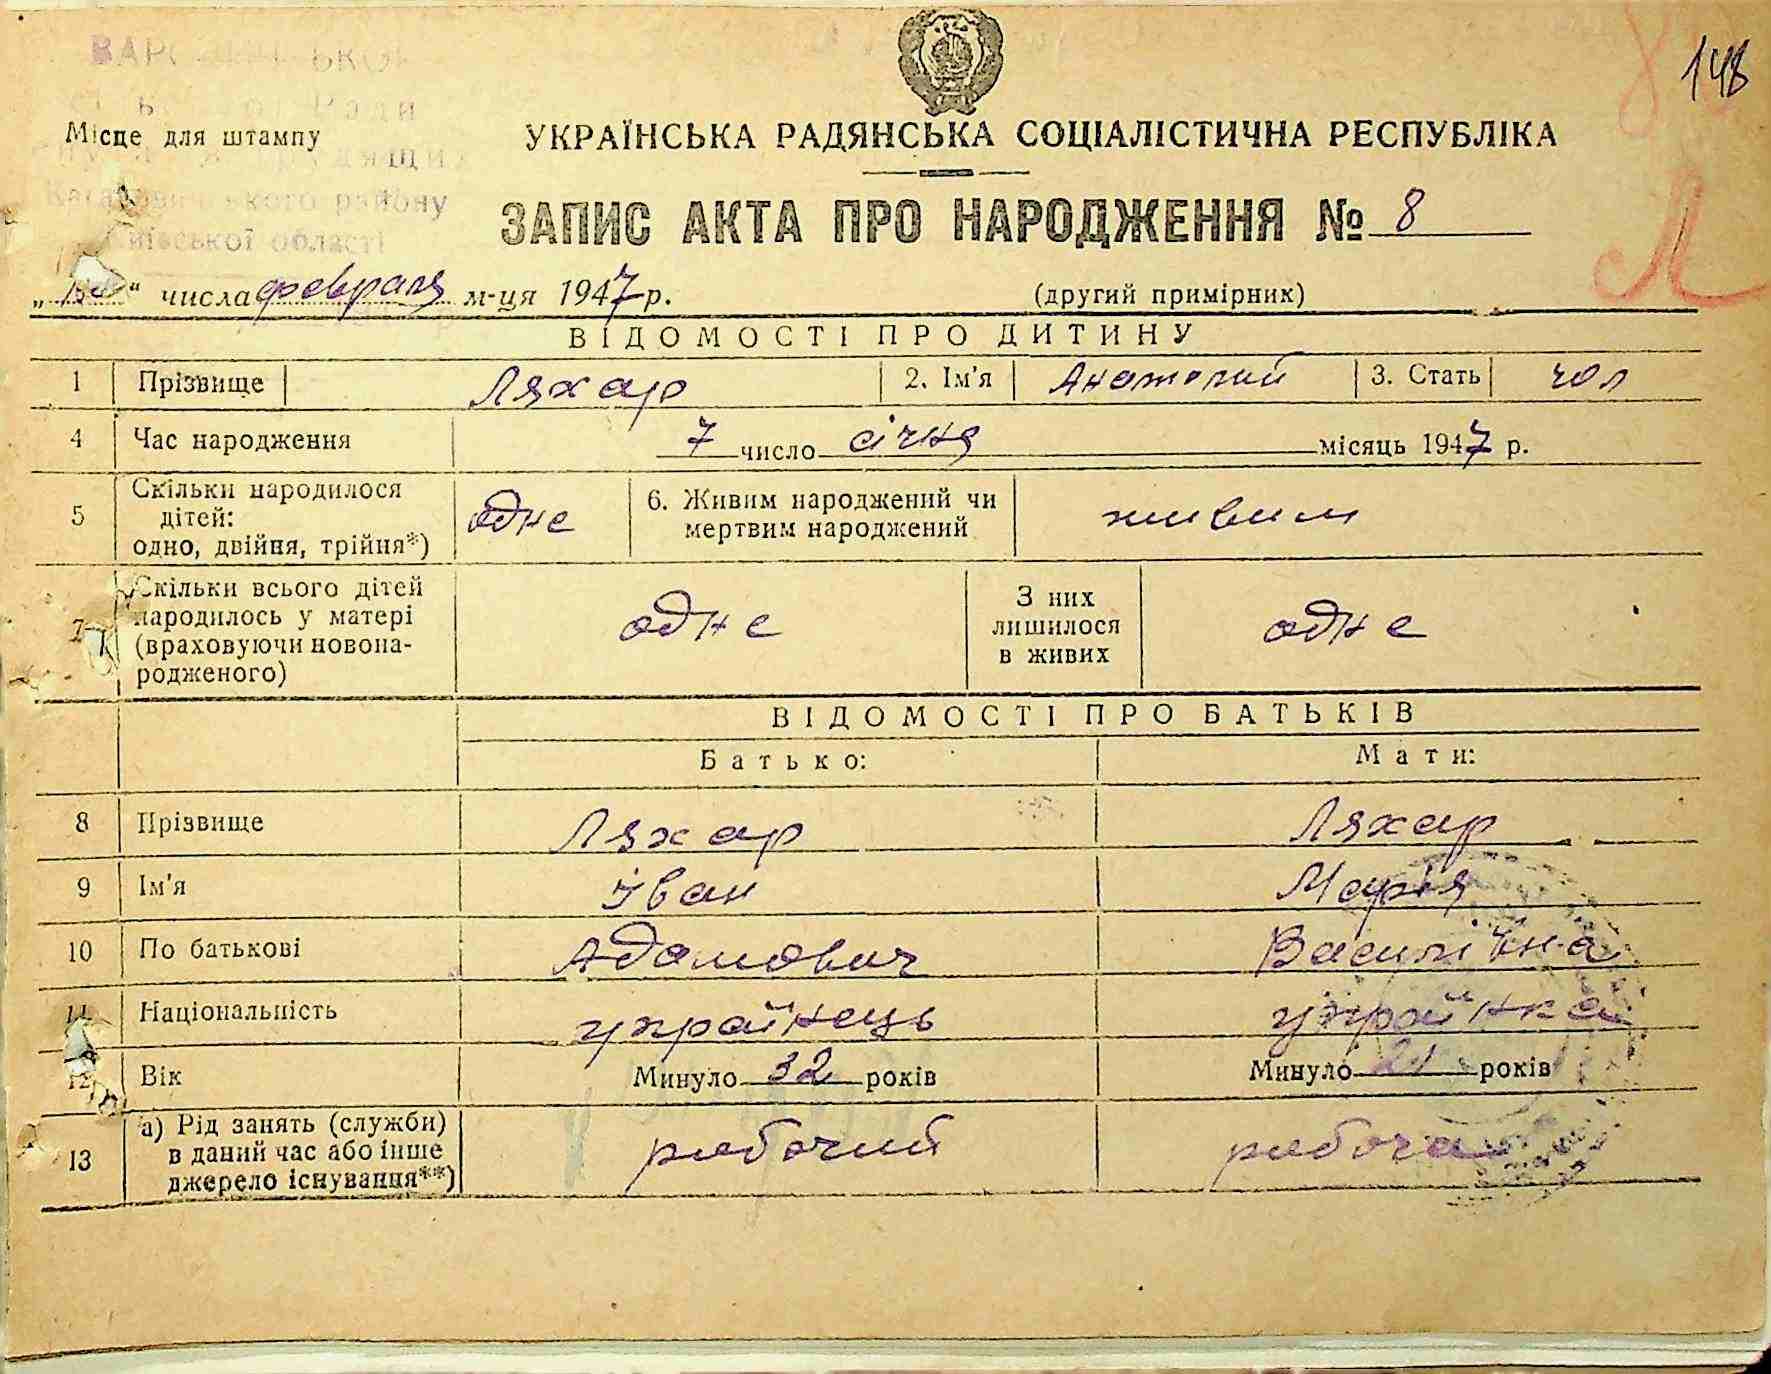 148
Місце для штампу
району
Київської області
УКРАЇНСЬКА РАДЯНСЬКА СОЦІАЛІСТИЧНА РЕСПУБЛІКА
ЗАПИС АКТА ПРО НАРОДЖЕННЯ № 8
Л
" " числа февраля м-ця 1947 р. (другий примірник)
ВІДОМОСТІ ПРО ДИТИНУ
1 Прізвище Ляхар 2. Ім'я Анатолий 3. Стать чол
4 Час народження 7 число січня місяць 1947 р.
5 Скільки народилося дітей: одно, двійня, трійня*) одне 6. Живим народжений чи мертвим народжений живим
7 Скільки всього дітей народилось у матері (враховуючи новона-родженого) одне З них лишилося в живих одне
ВІДОМОСТІ ПРО БАТЬКІВ
Батько: Мати:
8 Прізвище Ляхар Ляхар
9 Ім'я Іван Марія
10 По батькові Адамович Василівна
11 Національність українець українка
12 Вік Минуло 32 років Минуло 21 років
13 а) Рід занять (служби) в даний час або інше джерело існування**) рабочий рабоча